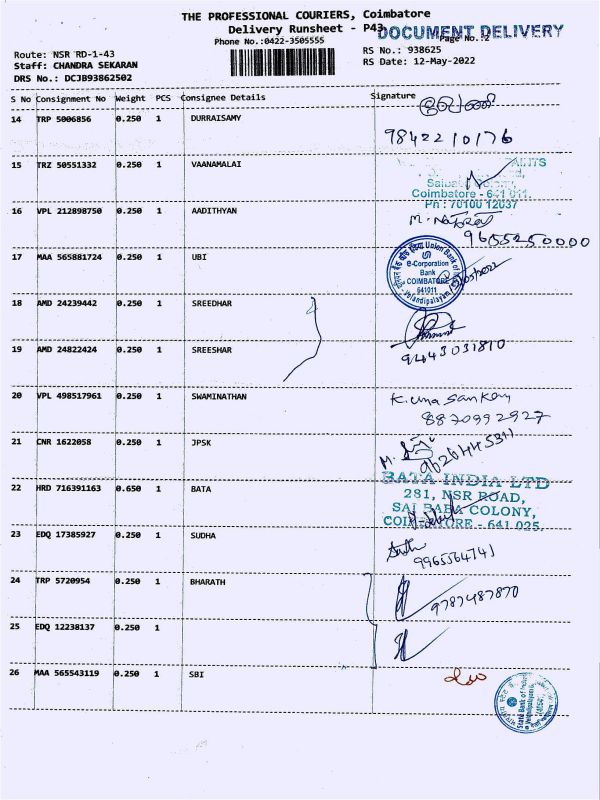 THE PROFESSIONAL COURIERS, Coimbatore
Delivery Runsheet - P43
DOCUMENT DELIVERY
Phone No.:0422-3505555
Page No.:2
Route: NSR RD-1-43
RS No.: 938625
Staff: CHANDRA SEKARAN
RS Date: 12-May-2022
DRS No.: DCJB93862502
S No Consignment No Weight PCS Consignee Details Signature
14 TRP 5006856 0.250 1 DURRAISAMY
9842210176
15 TRZ 50551332 0.250 1 VAANAMALAI
Coimbatore - 641 011.
Ph : 70100 12037
16 VPL 212898750 0.250 1 AADITHYAN
9655250000
17 MAA 565881724 0.250 1 UBI
Union Bank of
e-Corporation
Bank
COIMBATORE
641011
Velandipalayam
18 AMD 24239442 0.250 1 SREEDHAR
19 AMD 24822424 0.250 1 SREESHAR
9443031810
20 VPL 498517961 0.250 1 SWAMINATHAN
K. Uma Sankary
8870992927
21 CNR 1622058 0.250 1 JPSK
9626445311
22 HRD 716391163 0.650 1 BATA
BATA INDIA LTD
281, NSR ROAD,
SAI BABA COLONY,
COIMBATORE - 641 025.
23 EDQ 17385927 0.250 1 SUDHA
9965564741
24 TRP 5720954 0.250 1 BHARATH
9787487870
25 EDQ 12238137 0.250 1
26 MAA 565543119 0.250 1 SBI
State Bank of India